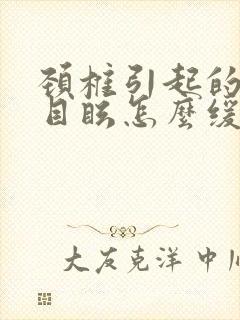 頚椎引起的
目眩怎麼缓
大友克洋中川